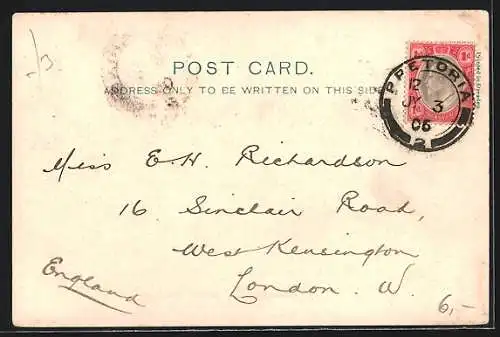 -/3
POST CARD.
ADDRESS ONLY TO BE WRITTEN ON THIS SIDE
PRETORIA
2
JY 3
06
Miss E. H. Richardson
16 Sinclair Road,
West Kensington
London. W.
England
6,-